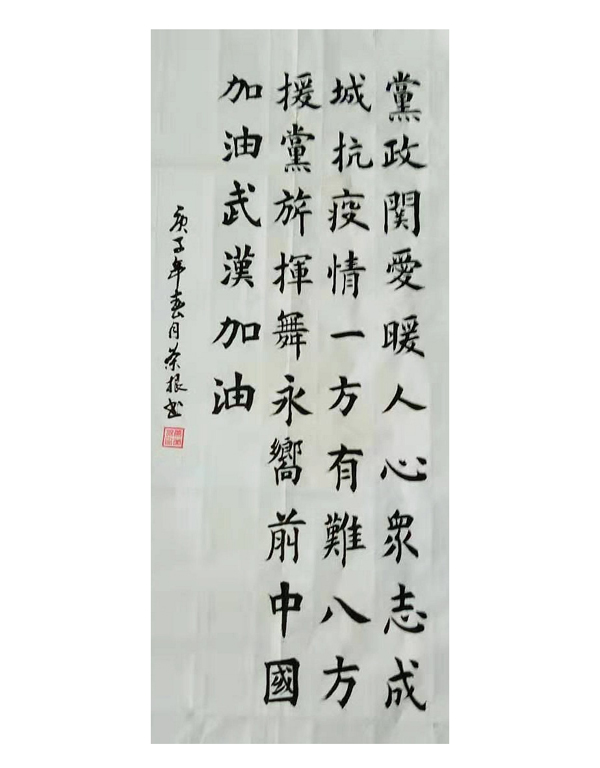 黨政関愛暖人心衆志成
城抗疫情一方有難八方
援黨旂揮舞永嚮前中國
加油武漢加油
庚子年春月荣根书